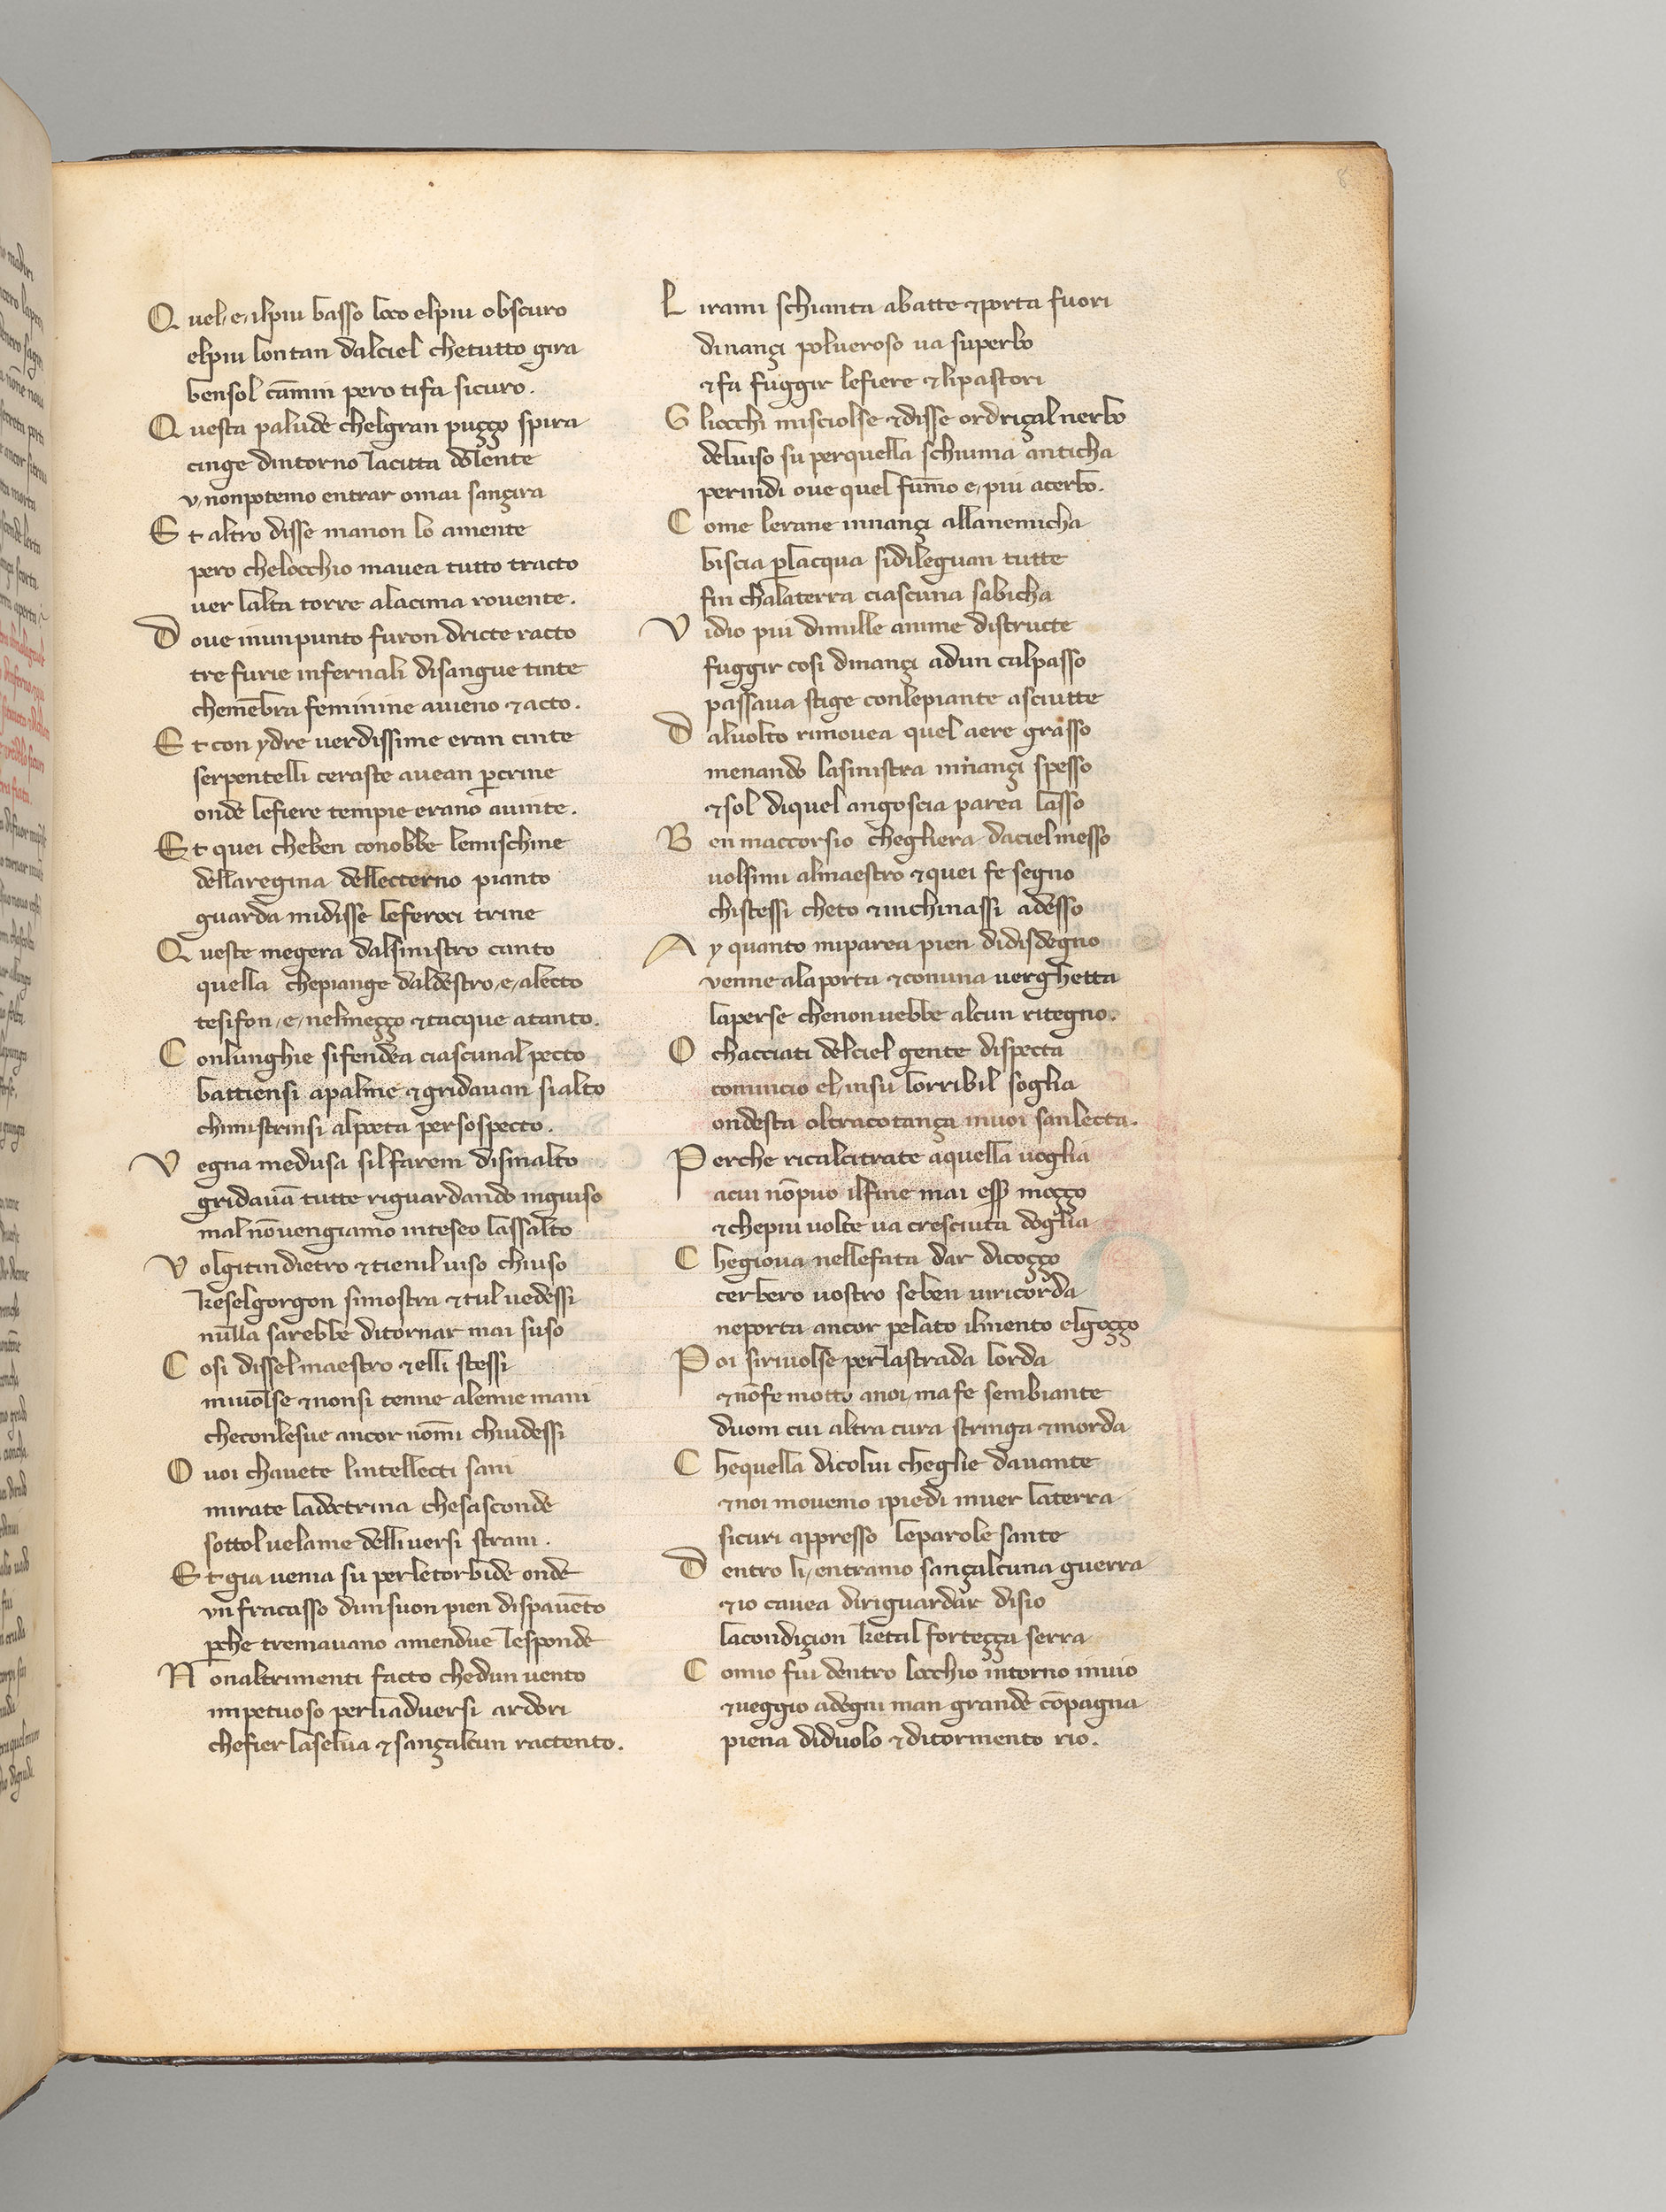 8
Quel, e, ilpiu basso loco elpiu obscuro
elpiu lontan dalciel chetutto gira
bensol cāmin pero tifa sicuro.
Questa palude chelgran puçço spira
cinge dintorno lacitta dolente
v, nonpotemo entrar omai sançira
Et altro disse manon lo amente
pero chelocchio mavea tutto tracto
ver lalta torre alacima rovente.
Dove inunpunto furon dricte racto
tre furie infernali disangue tinte
chemēbra feminine avieno & acto.
Et con ydre verdissime eran cinte
serpentelli ceraste avean p̲crine
onde lefiere tempie erano avinte.
Et quei cheben conobbe lemischine
dellaregina delletterno pianto
guarda midisse leferoci trine
Queste megera dalsinistro canto
quella chepiange daldestro, e, alecto
tesifon, e, nelmeçço & tacque atanto.
Conlunghie sifendea ciascunal pecto
battiensi apalme & gridavan sialto
chimistrinsi alpoeta persospecto.
Vegna medusa silfarem dismalto
gridavā tutte riguardando ingiuso
mal nōvengiamo inteseo lassalto
Volgitindietro & tienil viso chiuso
keselgorgon simostra & tul vedessi
nulla sarebbe ditornar mai suso
Cosi dissel maestro & elli stessi
mivolse & nonsi tenne alemie mani
checonlesue ancor nōmi chiudessi
O voi chavete lintellecti sani
mirate ladoctrina chesasconde
sottol velame delliversi strani.
Et gia venia su perletorbide onde
vn fracasso dunsuon pien dispavēto
p̲che tremavano amendue lesponde
Nonaltrimenti facto chedun vento
impetuoso perliadversi ardori
chefier laselva & sançalcun ractento.
Lirami schianta abatte & porta fuori
dinançi polveroso va superbo
& fa fuggir lefiere & lipastori
Gliocchi misciolse & disse ordriçal nerbo
delviso su perquella schiuma anticha
perindi ove quel fummo e, piu acerbo.
Come lerane innançi allanemicha
biscia p̲lacqua sidileguan tutte
fin chalaterra ciascuna sabicha
Vidio piu dimille anime distructe
fuggir cosi dinançi adun calpasso
passava stige conlepiante asciutte
Dalvolto rimovea quel aere grasso
menando lasinistra innançi spesso
& sol diquel angoscia parea lasso
Ben maccorsio chegliera daciel messo
volsimi almaestro & quei fe segno
chistessi cheto & inchinassi adesso
Ay quanto miparea pien didisdegno
venne alaporta & conuna verghetta
laperse chenonvebbe alcun ritegno.
O chacciati delciel gente dispecta
comincio el, insu lorribil soglia
ondesta oltracotança invoi sanlecta.
Perche ricalcitrate aquella voglia
acui nōpuo ilfine mai esser̲ moçço
& chepiu volte va cresciuta doglia
Chegiova nellefata dar dicoçço
cerbero vostro seben viricorda
neporta ancor pelato ilmento elgoçço
Poi sirivolse perlastrada lorda
& nōfe motto anoi, ma fe sembiante
duom cui altra cura stringa & morda
Chequella dicolui cheglie davante
& noi movemo ipiedi inver laterra
sicuri appresso leparole sante
Dentro li, entramo sançalcuna guerra
& io cavea diriguardar disio
lacondiçion ketal forteçça serra
Comio fui dentro locchio intorno invio
& veggio adogni man grande cōpagna
piena diduolo & ditormento rio.